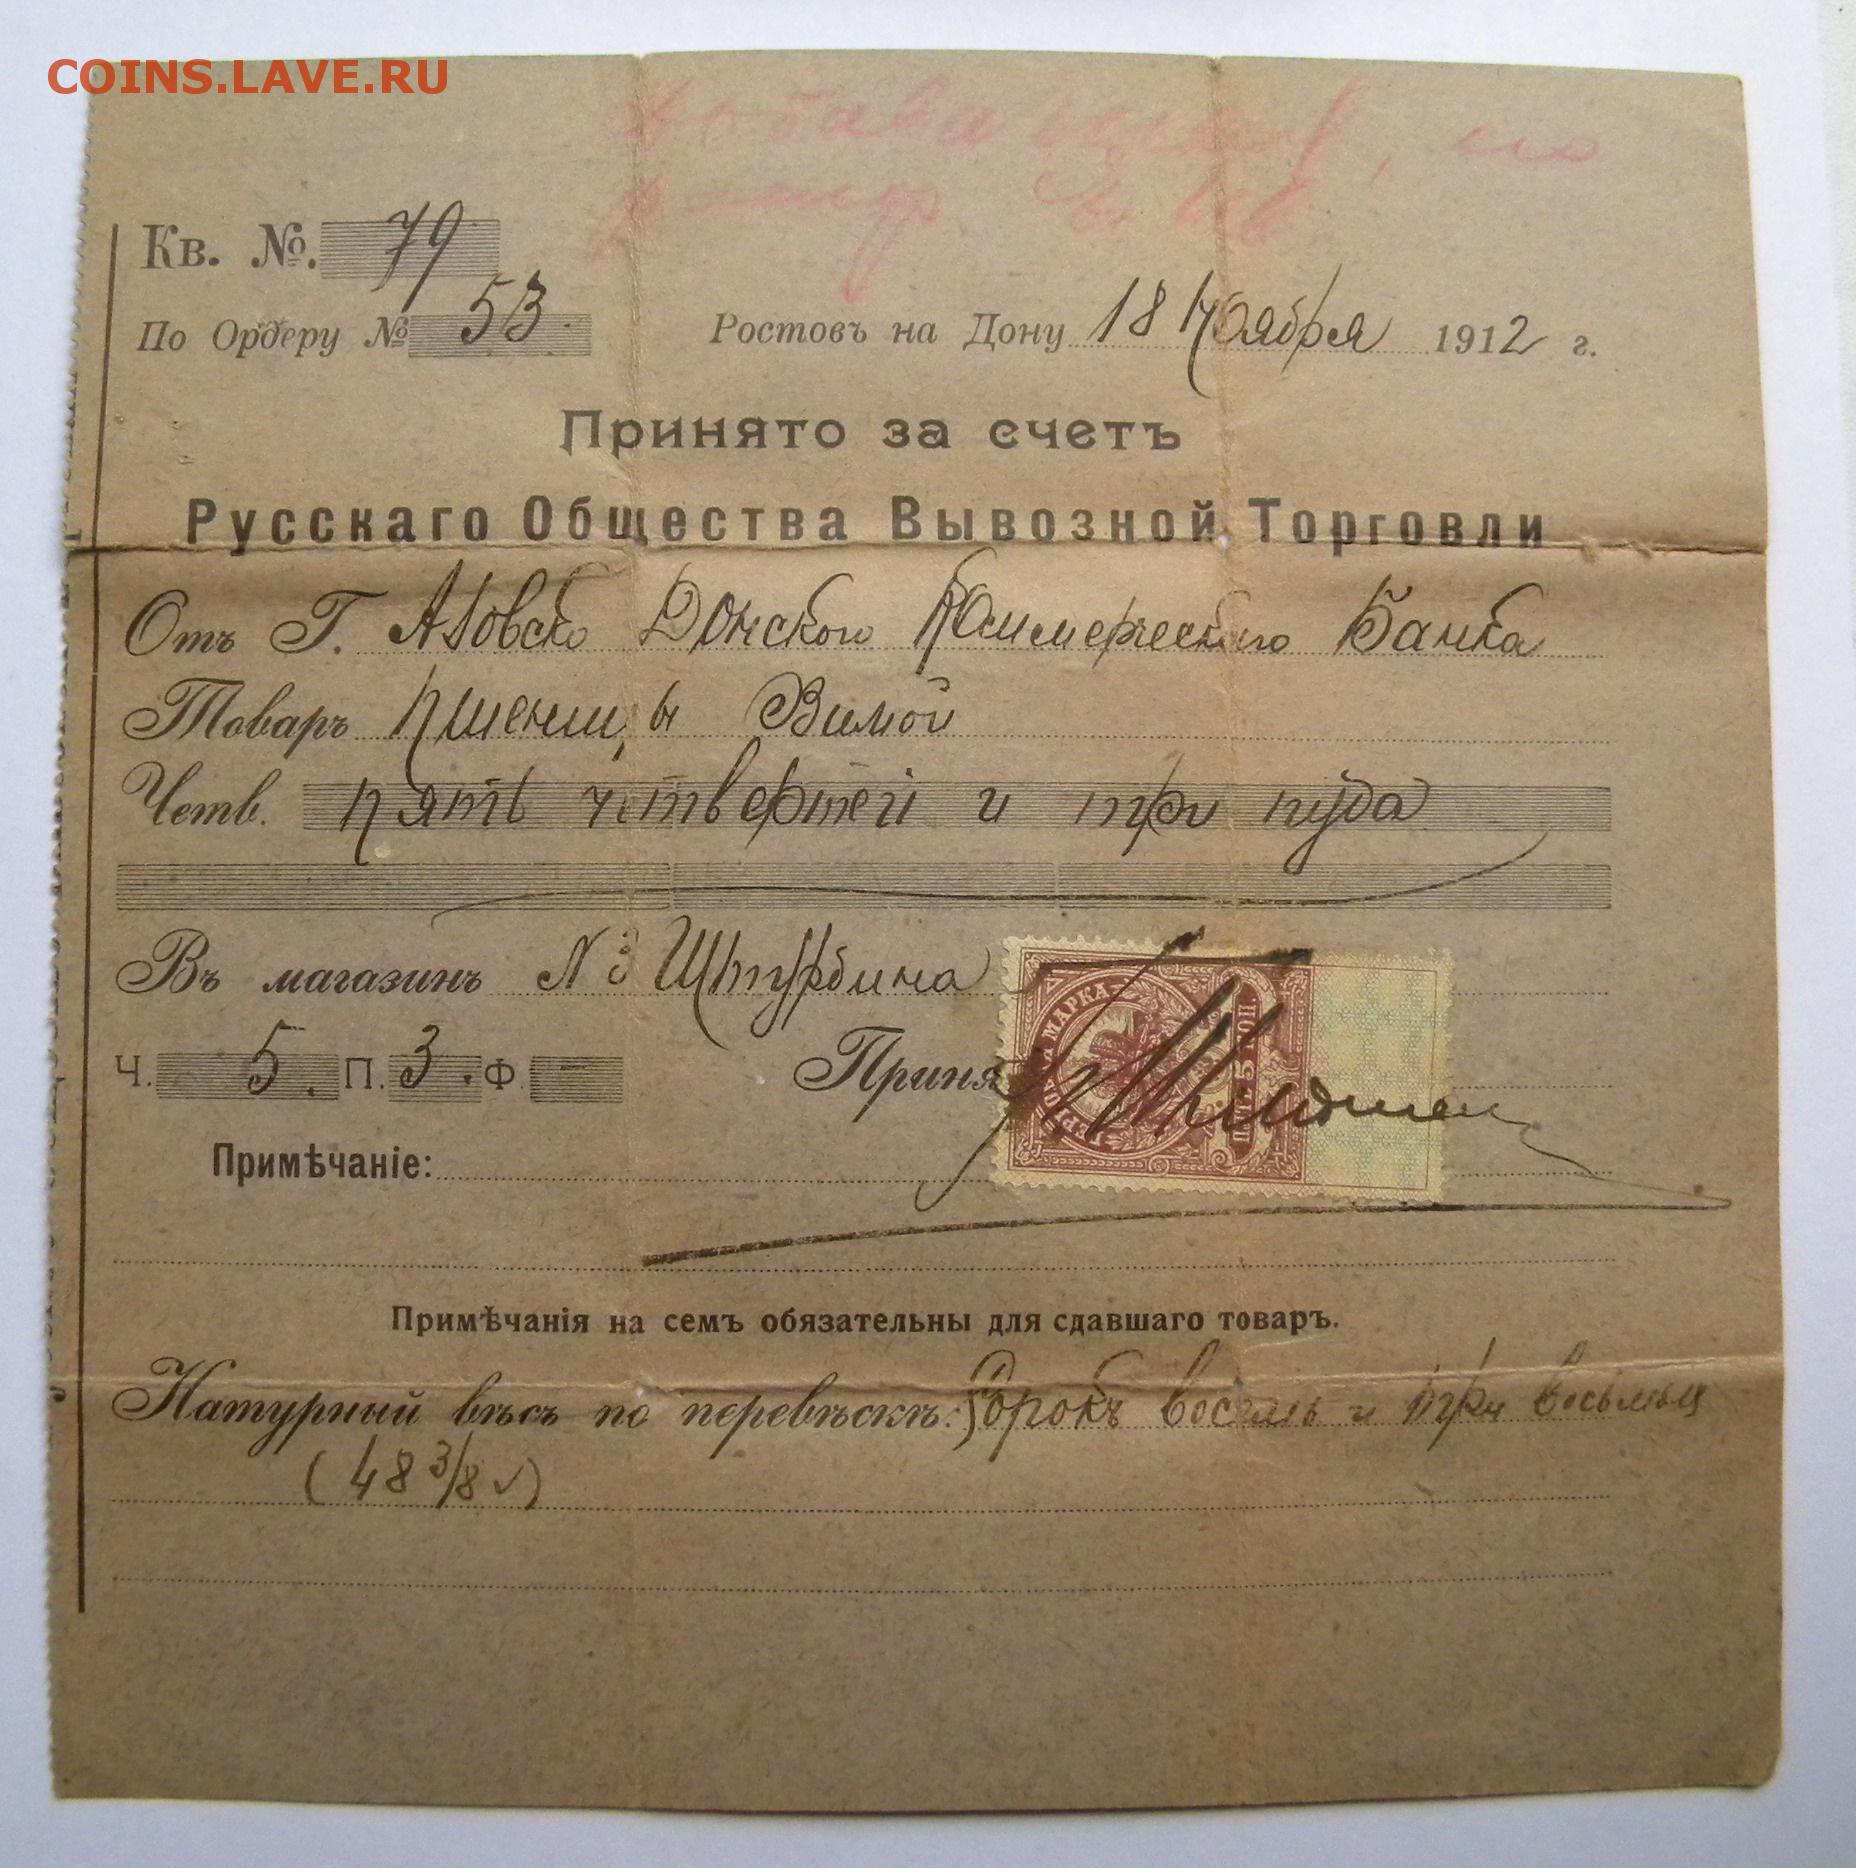 COINS.LAVE.RU
Кв. №. 79
По Ордеру № 53.
Ростовъ на Дону 18 Ноября 1912 г.
Принято за счетъ
Русскаго Общества Вывозной Торговли
Отъ Г. Азовско Донского Коммерческаго Банка
Товаръ Пшеницы
Четв. Пять четвертей и три пуда
Въ магазинъ №
Ч. 5. П. 3. Ф. -
Приня
МАРКА
ПЯТЬ 5 КОП.
Примѣчаніе:
Примѣчанія на семъ обязательны для сдавшаго товаръ.
Натурный вѣсъ по перевѣскѣ: Сорокъ восемь и три восьмых
(48 3/8 ✓)